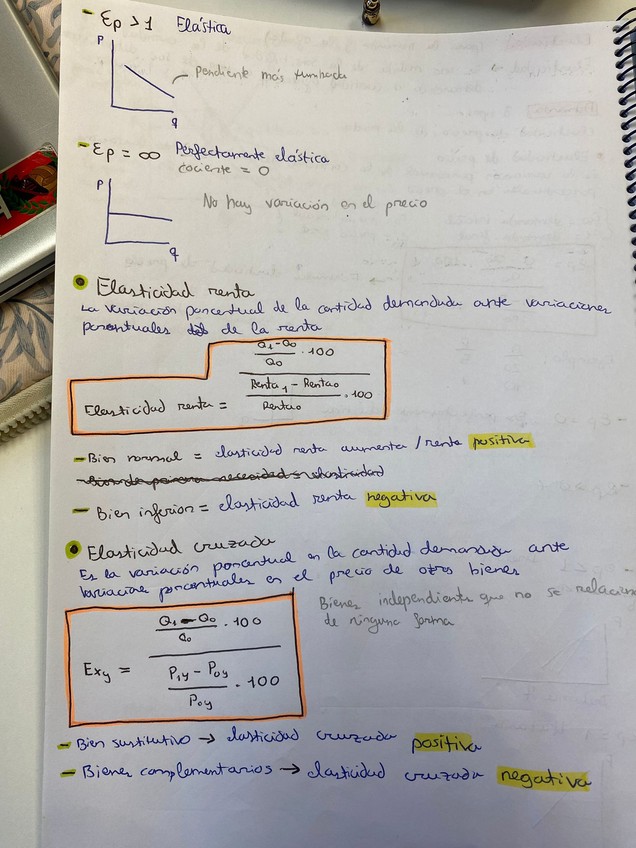 - Ep > 1 Elástica
P
pendiente más tumbada
q
- Ep = ∞ Perfectamente elástica
cociente = 0
P
No hay variación en el precio
q
• Elasticidad renta
La variación porcentual de la cantidad demandada ante variaciones
porcentuales de la renta
Elasticidad renta = ((Q1 - Q0)/Q0 · 100) / ((Renta1 - Renta0)/Renta0 · 100)
- Bien normal = elasticidad renta aumenta / renta positiva
- Bien inferior = elasticidad renta negativa
• Elasticidad cruzada
Es la variación porcentual en la cantidad demandada ante
variacione porcentuales en el precio de otros bienes
Bienes independiente que no se relaciona
de ninguna forma
Exy = ((Q1 - Q0)/Q0 · 100) / ((P1y - P0y)/P0y · 100)
- Bien sustitutivo → elasticidad cruzada positiva
- Bienes complementarios → elasticidad cruzada negativa